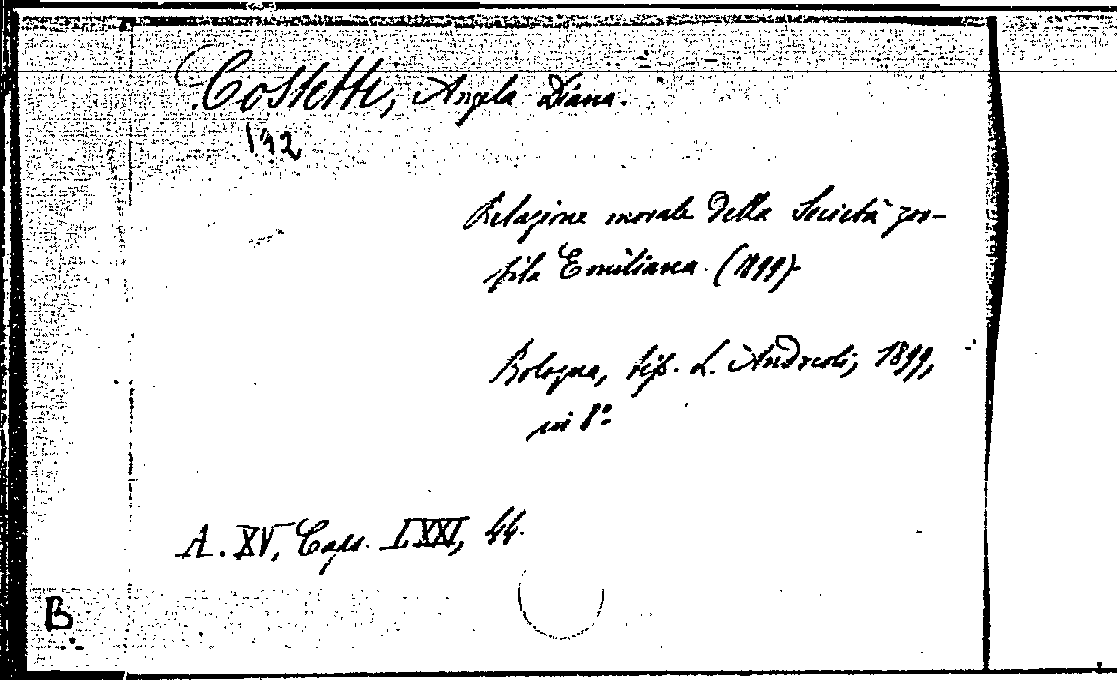 Costetti, Angela Diana.
132
Relazione morale della Società zoo-
fila Emiliana. (1899).
Bologna, tip. L. Andreoli, 1899,
in 8º.
A. XV, Caps. LXXI, 44.
B